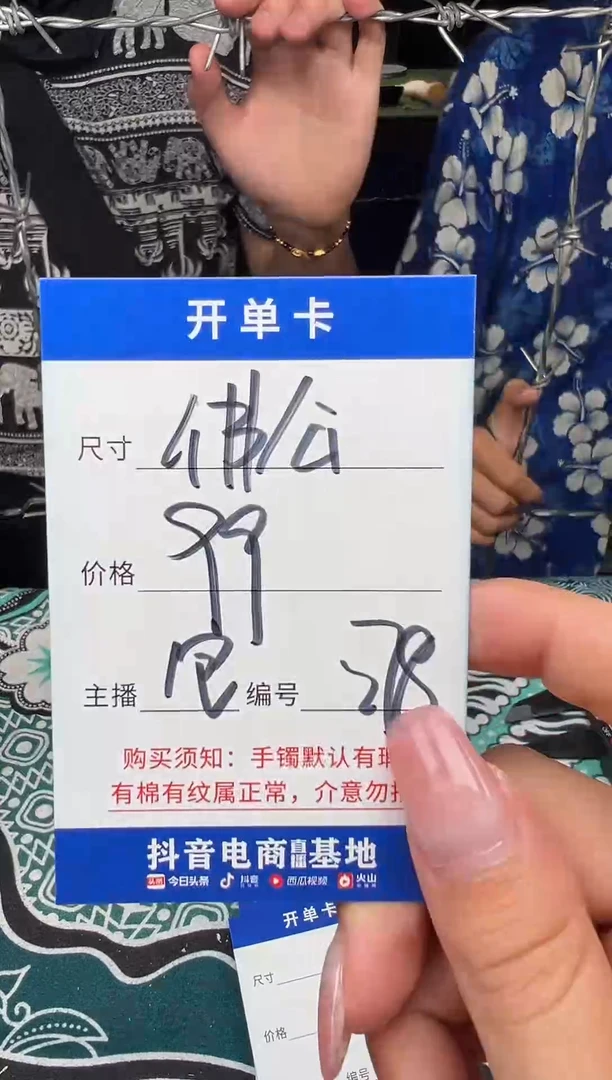 开单卡
尺寸 佛公
价格 99
主播 编号 28
购买须知：手镯默认有瑕
有棉有纹属正常，介意勿拍
抖音电商直播基地
头条 今日头条 抖音 西瓜视频 火山
开单卡
尺寸
价格
编号